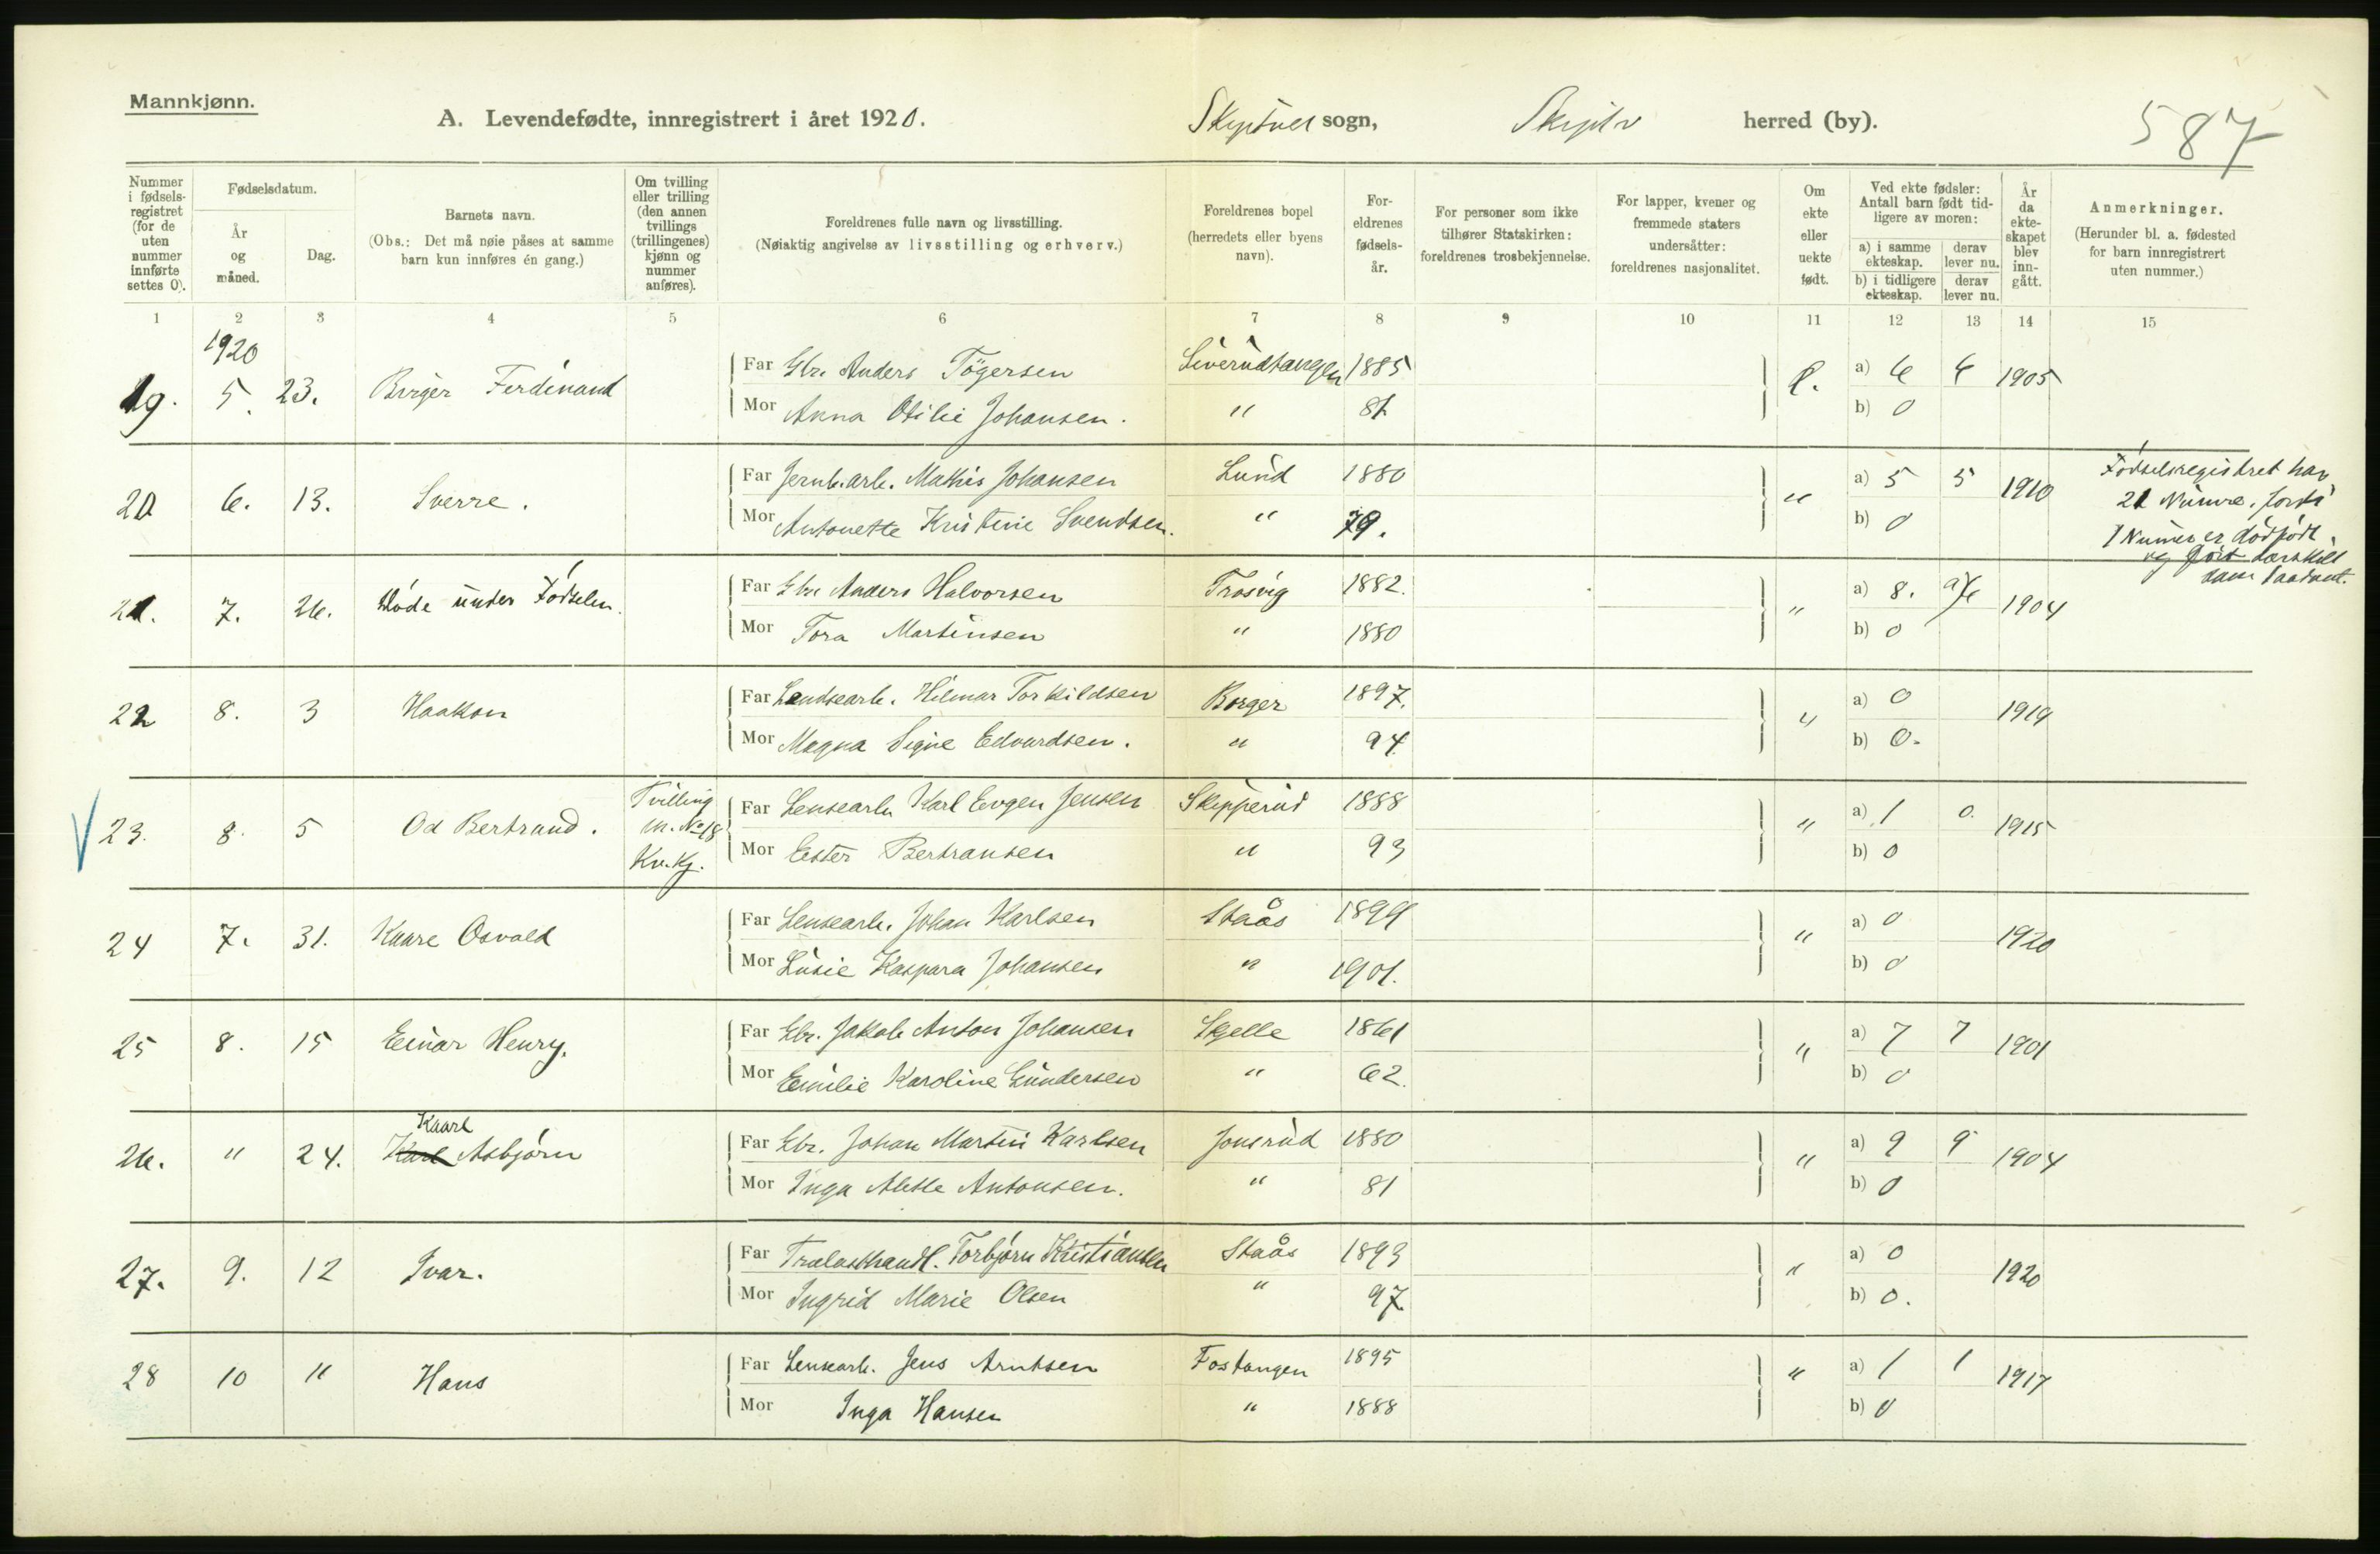 Mannkjønn.
A. Levendefødte, innregistrert i året 1920. sogn, herred (by). 587
Nummer i fødselsregistret (for de uten nummer innførte settes 0).
Fødselsdatum.
År og måned.
Dag.
Barnets navn.
(Obs.: Det må nøie påses at samme barn kun innføres én gang.)
Om tvilling eller trilling (den annen tvillings (trillingenes) kjønn og nummer anføres).
Foreldrenes fulle navn og livsstilling.
(Nøiaktig angivelse av livsstilling og erhverv.)
Foreldrenes bopel (herredets eller byens navn).
Foreldrenes fødselsår.
For personer som ikke tilhører Statskirken: foreldrenes trosbekjennelse.
For lapper, kvener og fremmede staters undersåtter: foreldrenes nasjonalitet.
Om ekte eller uekte født.
Ved ekte fødsler: Antall barn født tidligere av moren:
a) i samme ekteskap. derav lever nu.
b) i tidligere ekteskap. derav lever nu.
År da ekteskapet blev inngått.
Anmerkninger.
(Herunder bl. a. fødested for barn innregistrert uten nummer.)
1 2 3 4 5 6 7 8 9 10 11 12 13 14 15
1920
19. 5. 23. Birger Ferdinand Far Gbr. Anders Tögersen Siverudtangen 1885 e. a) 6 6 1905
Mor Anna Otilie Johansen. " 81 b) 0
20 6. 13. Sverre. Far Jernb.arb. Mathis Johansen Lund 1880 " a) 5 5 1910 Födselsregistret har
21 Numre, fordi
Mor Antonette Kristine Svendsen. " 79. b) 0
1 Numer er dödfödt
21. 7. 26. Döde under Fødselen. Far Gbr Anders Halvorsen Trosvig 1882. " a) 8. 1904
Mor Tora Martinsen " 1880 b) 0
22 8. 3 Haakon Far Lendsearb. Hilmar Torkildsen Borger 1897. " a) 0 1919
Mor Magna Signe Edvardsen. " 94 b) 0.
23. 8. 5 Od Bertrand. Tvilling m. No 18 Kv.Kj. Far Lensearb Karl Evgen Jensen Skipperud 1888 " a) 1 0. 1915
Mor Ester Bertransen " 93 b) 0
24 7. 31. Kaare Osvald Far Lensearb. Johan Karlsen Staås 1899 " a) 0 1920
Mor Lusie Kaspara Johansen " 1901. b) 0
25 8. 15 Einar Henry. Far Gbr. Jakob Anton Johansen Skjelle 1861 " a) 7 7 1901
Mor Emilie Karoline Gundersen " 62. b) 0
Kaare
26. " 24. Karl Asbjörn Far Gbr. Johan Martin Karlsen Jonsrud 1880 " a) 9 9 1904
Mor Inga Alette Antonsen. " 81 b) 0
27. 9. 12 Ivar. Far Trælasthandl. Torbjörn Kristiansen Staås 1893 " a) 0 1920
Mor Ingrid Marie Olsen " 97 b) 0.
28 10 11 Hans Far Lensearb. Jens Arntsen Fostangen 1895 " a) 1 1 1917
Mor Inga Hansen " 1888 b) 0